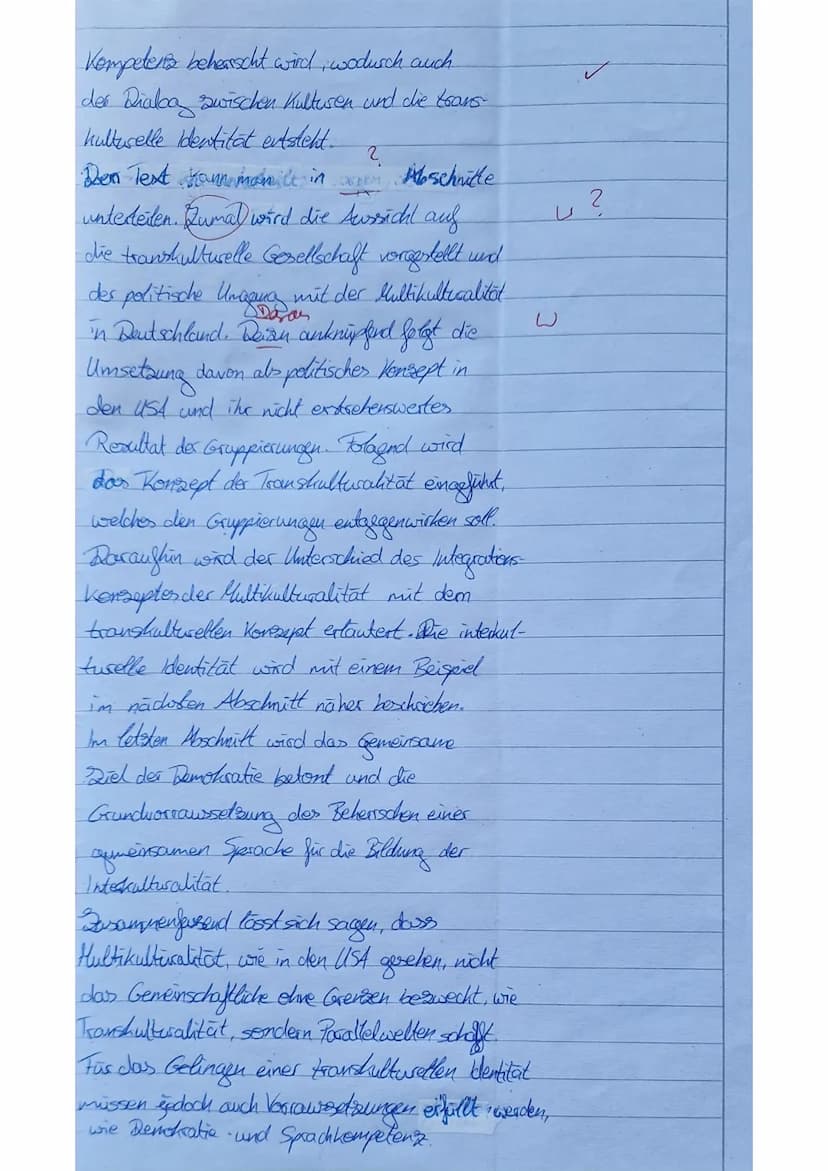 Kompetenz beherrscht wird, wodurch auch ✓
der Dialog zwischen Kulturen und die trans-
kulturelle Identität entsteht.
?
Den Text kann man in Abschnitte
unterteilen. Zumal wird die Aussicht auf ?
die transkulturelle Gesellschaft vorgestellt und
der politische Umgang mit der Multikulturalität
Daran
in Deutschland. anknüpfend folgt die
Umsetzung davon als politisches Konzept in
den USA und ihr nicht erstrebenswertes
Resultat der Gruppierungen. Folgend wird
das Konzept der Transkulturalität eingeführt,
welches den Gruppierungen entgegenwirken soll.
Daraufhin wird der Unterschied des Integrations-
konzeptes der Multikulturalität mit dem
transkulturellen Konzept erläutert. Die interkul-
turelle Identität wird mit einem Beispiel
im nächsten Abschnitt näher beschrieben.
Im letzten Abschnitt wird das Gemeinsame
Ziel der Demokratie betont und die
Grundvorraussetzung des Beherrschen einer
gemeinsamen Sprache für die Bildung der
Interkulturalität.
Zusammenfassend lässt sich sagen, dass
Multikulturalität, wie in den USA gesehen, nicht
das Gemeinschaftliche ohne Grenzen bezweckt, wie
Transkulturalität, sondern Parallelwelten schafft.
Für das Gelingen einer transkulturellen Identität
müssen jedoch auch Vorraussetzungen erfüllt werden,
wie Demokratie und Sprachkompetenz.